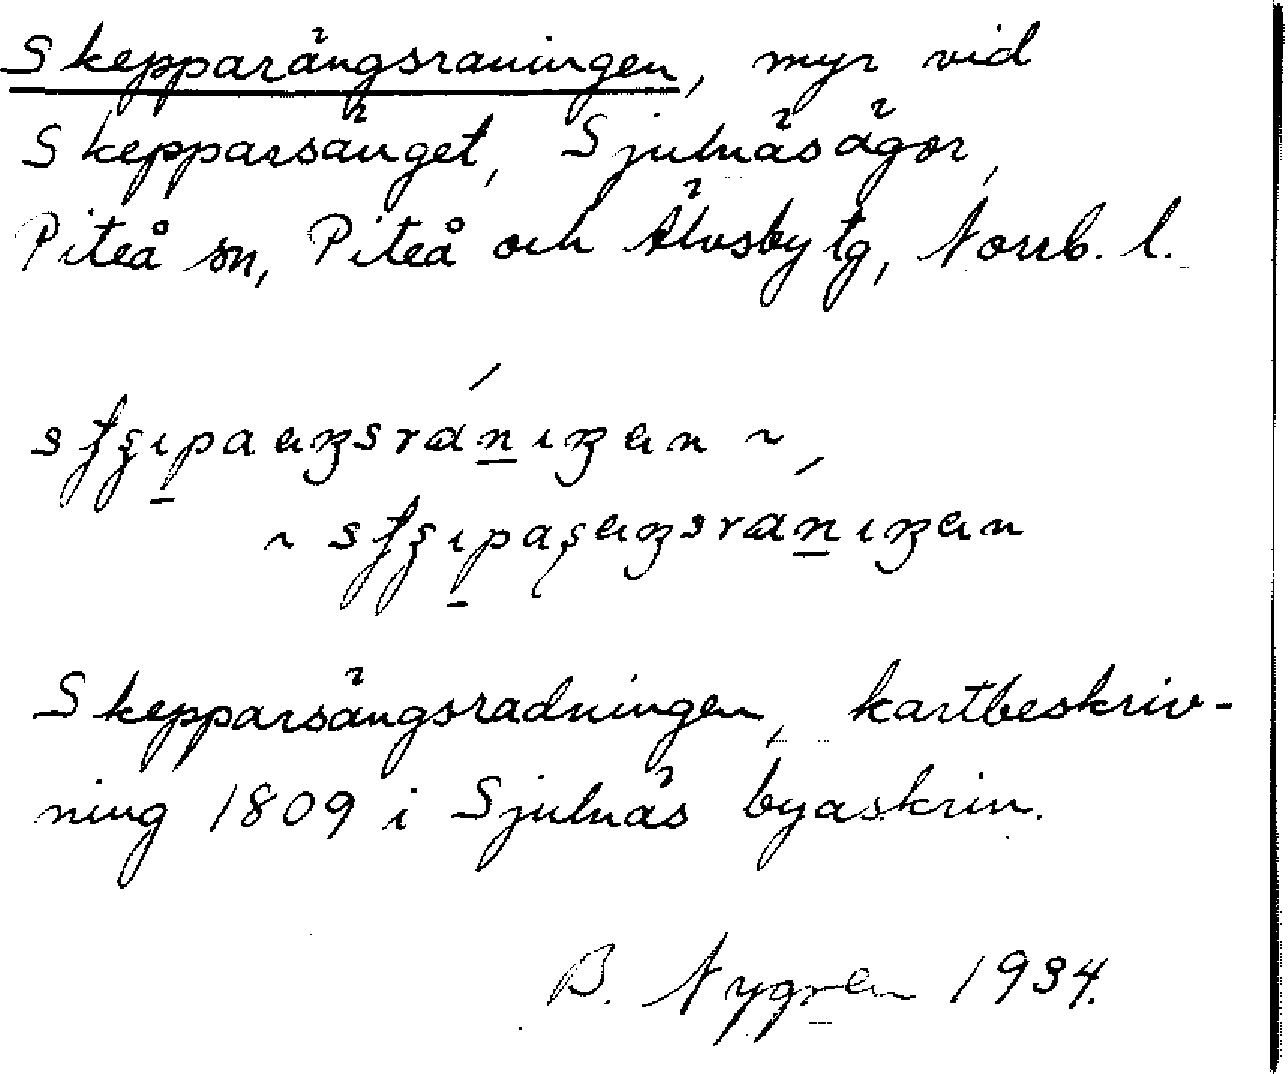 Skepparängsraningen, myr vid
Skepparsänget, Sjulnäsägor,
Piteå sn, Piteå och Älvsby tg, Norrb. l.
Skepparsängsradningen, kartbeskriv-
ning 1809 i Sjulnäs byaskrin.
B. Nygren 1934.